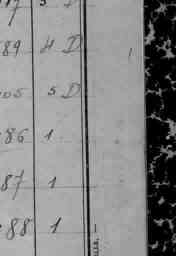 89 4 D
05 5 D
86 1
87 1
88 1